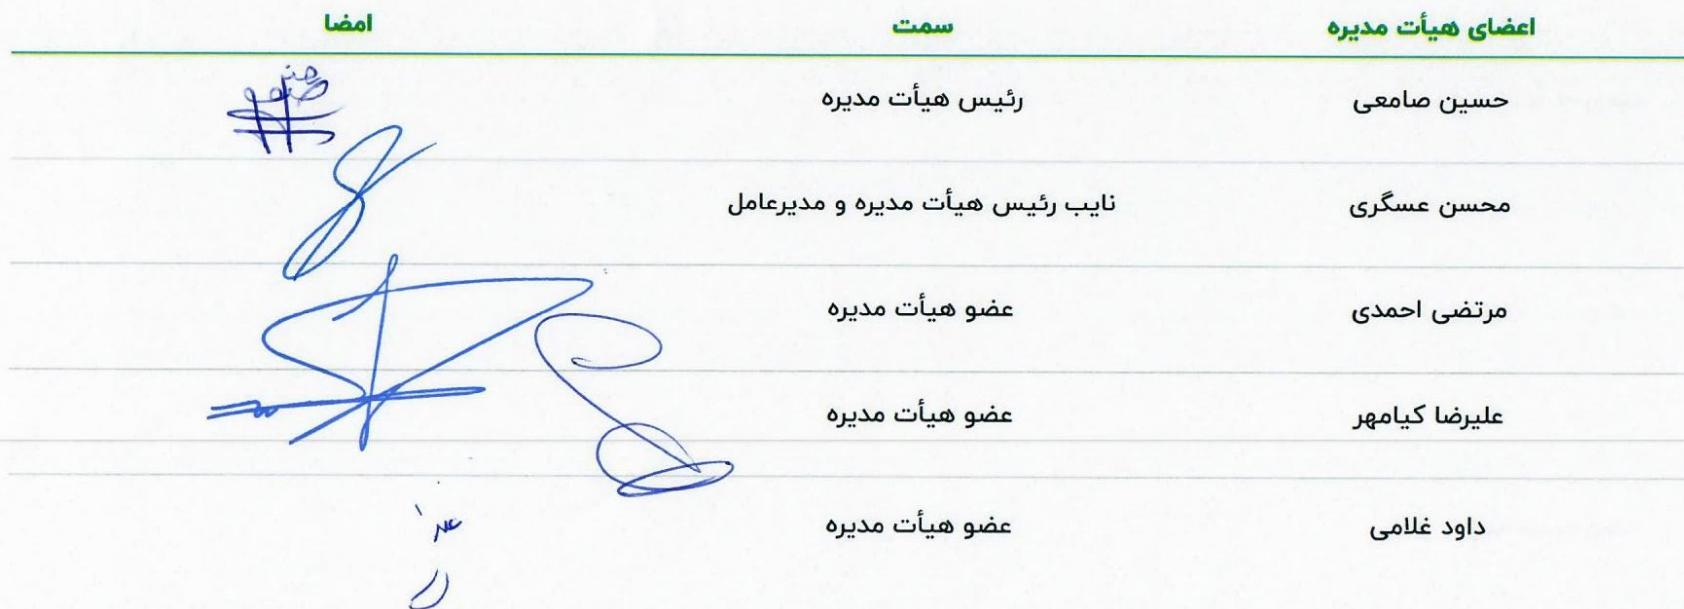 اعضای هیأت مدیره سمت امضا
حسین صامعی رئیس هیأت مدیره
محسن عسگری نایب رئیس هیأت مدیره و مدیرعامل
مرتضی احمدی عضو هیأت مدیره
علیرضا کیامهر عضو هیأت مدیره
داود غلامی عضو هیأت مدیره